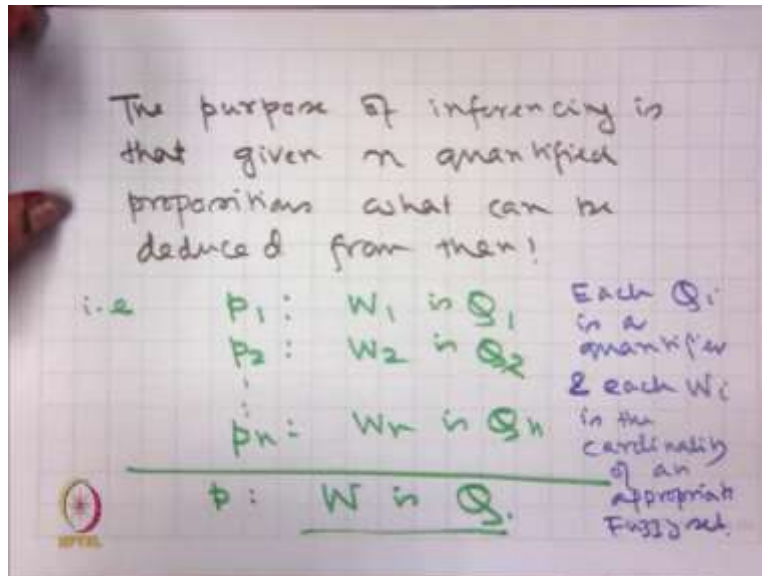 The purpose of inferencing is
that given n quantified
propositions what can be
deduced from them!
i.e p1: W1 is Q1
p2: W2 is Q2
⋮
pn: Wn is Qn
p: W is Q.
Each Qi
is a
quantifier
& each Wi
is the
cardinality
of an
appropriate
Fuzzy set.
NPTEL